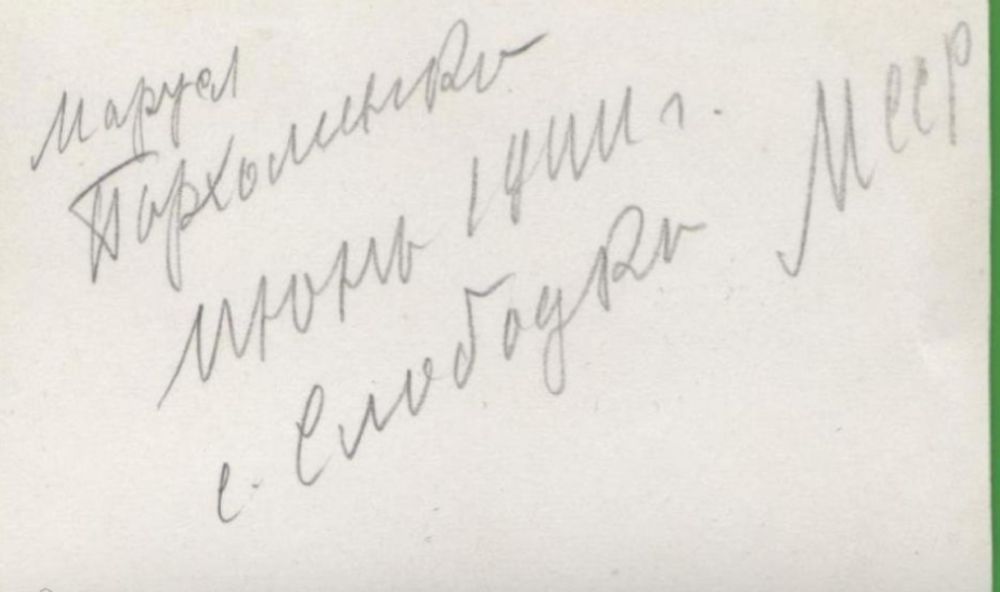 Маруся
Пархоменко
июнь г.
с. Слободка МССР